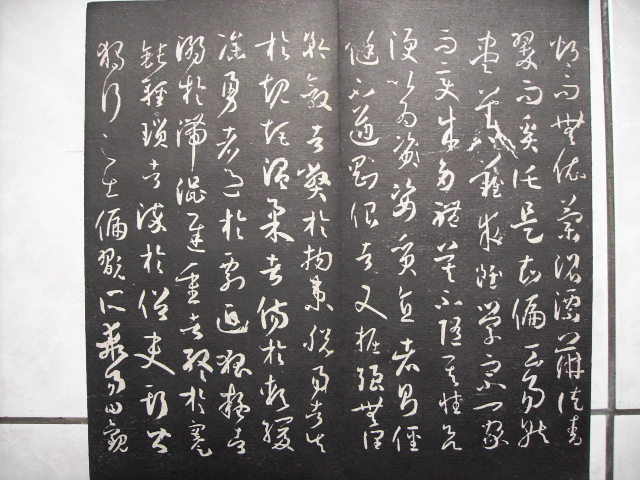 灼而無依蘭沼漂蓱徒青
翠而奚託是知偏工易就
盡善難求雖學宗一家
而變成多體莫不隨其性欲
便以為資姿質直者則俓
侹不遒剛佷者又掘強無潤
矜斂者弊於拘束脫易者失
於規矩溫柔者傷於軟緩
躁勇者過於剽迫狐疑者
溺於滯澀遲重者終於蹇
鈍輕瑣者淬於俗吏斯皆
獨行之士偏翫所乖易曰觀